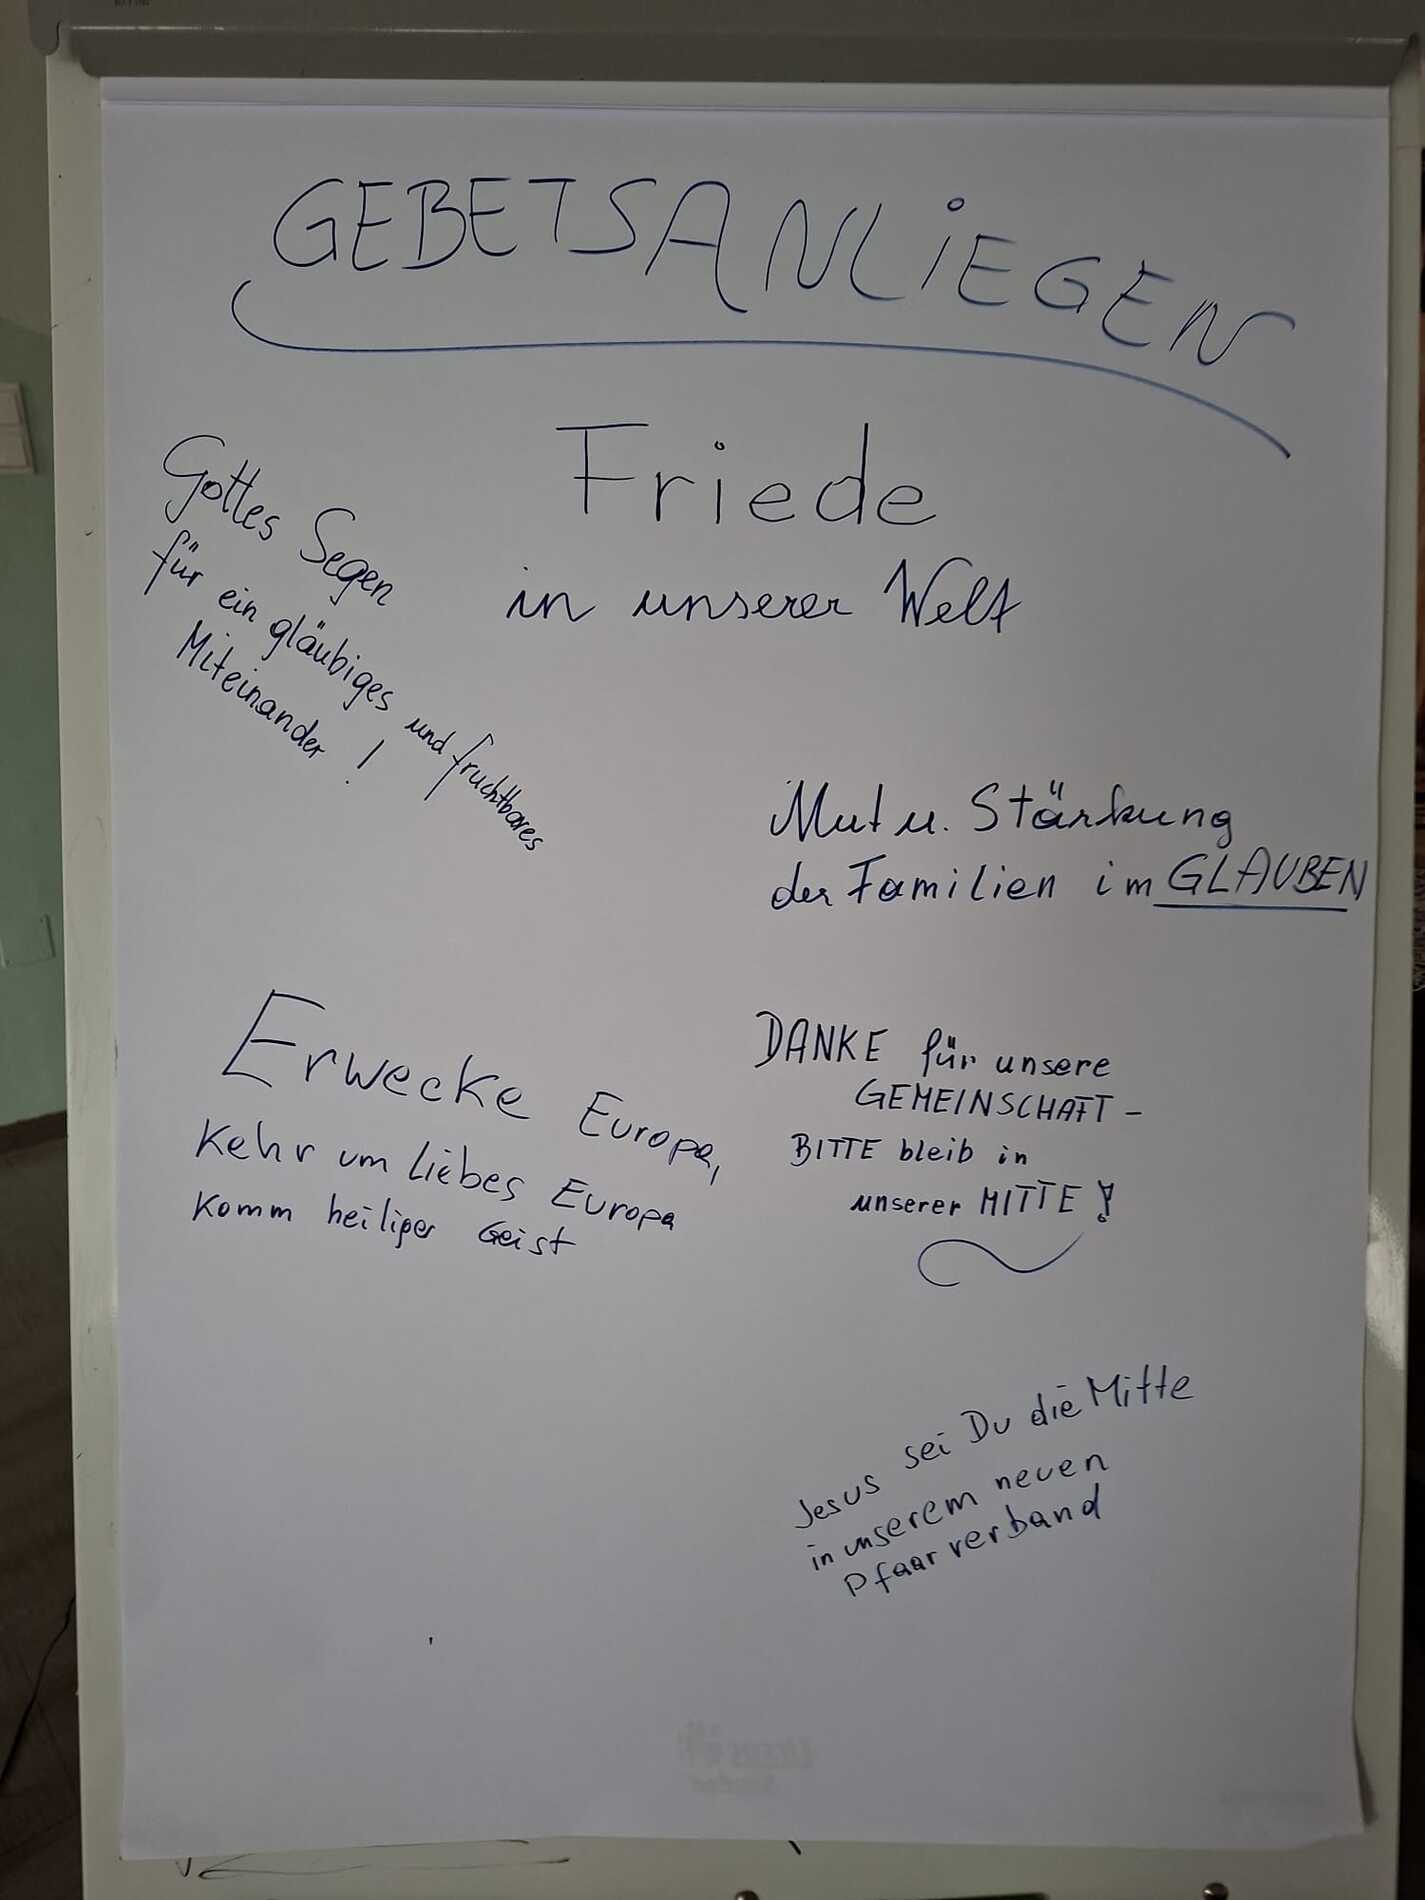 GEBETSANLIEGEN
Friede
in unserer Welt
Gottes Segen
für ein gläubiges und fruchtbares
Miteinander!
Mut u. Stärkung
der Familien im GLAUBEN
Erwecke Europa,
Kehr um liebes Europa
Komm heiliger Geist
DANKE für unsere
GEMEINSCHAFT -
BITTE bleib in
unserer MITTE!
Jesus sei Du die Mitte
in unserem neuen
Pfaarverband